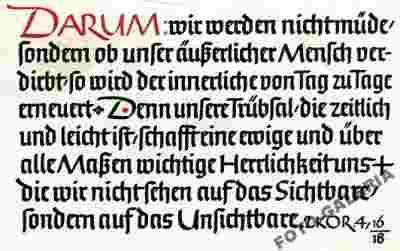 DARUM: wir werden nicht müde,
sondern ob unser äußerlicher Mensch ver-
dirbt, so wird der innerliche von Tag zu Tage
erneuert. Denn unsere Trübsal, die zeitlich
und leicht ist, schafft eine ewige und über
alle Maßen wichtige Herrlichkeit uns +
die wir nicht sehen auf das Sichtbare,
sondern auf das Unsichtbare. 2. KOR. 4, 16/18
FOTO-GALERIA